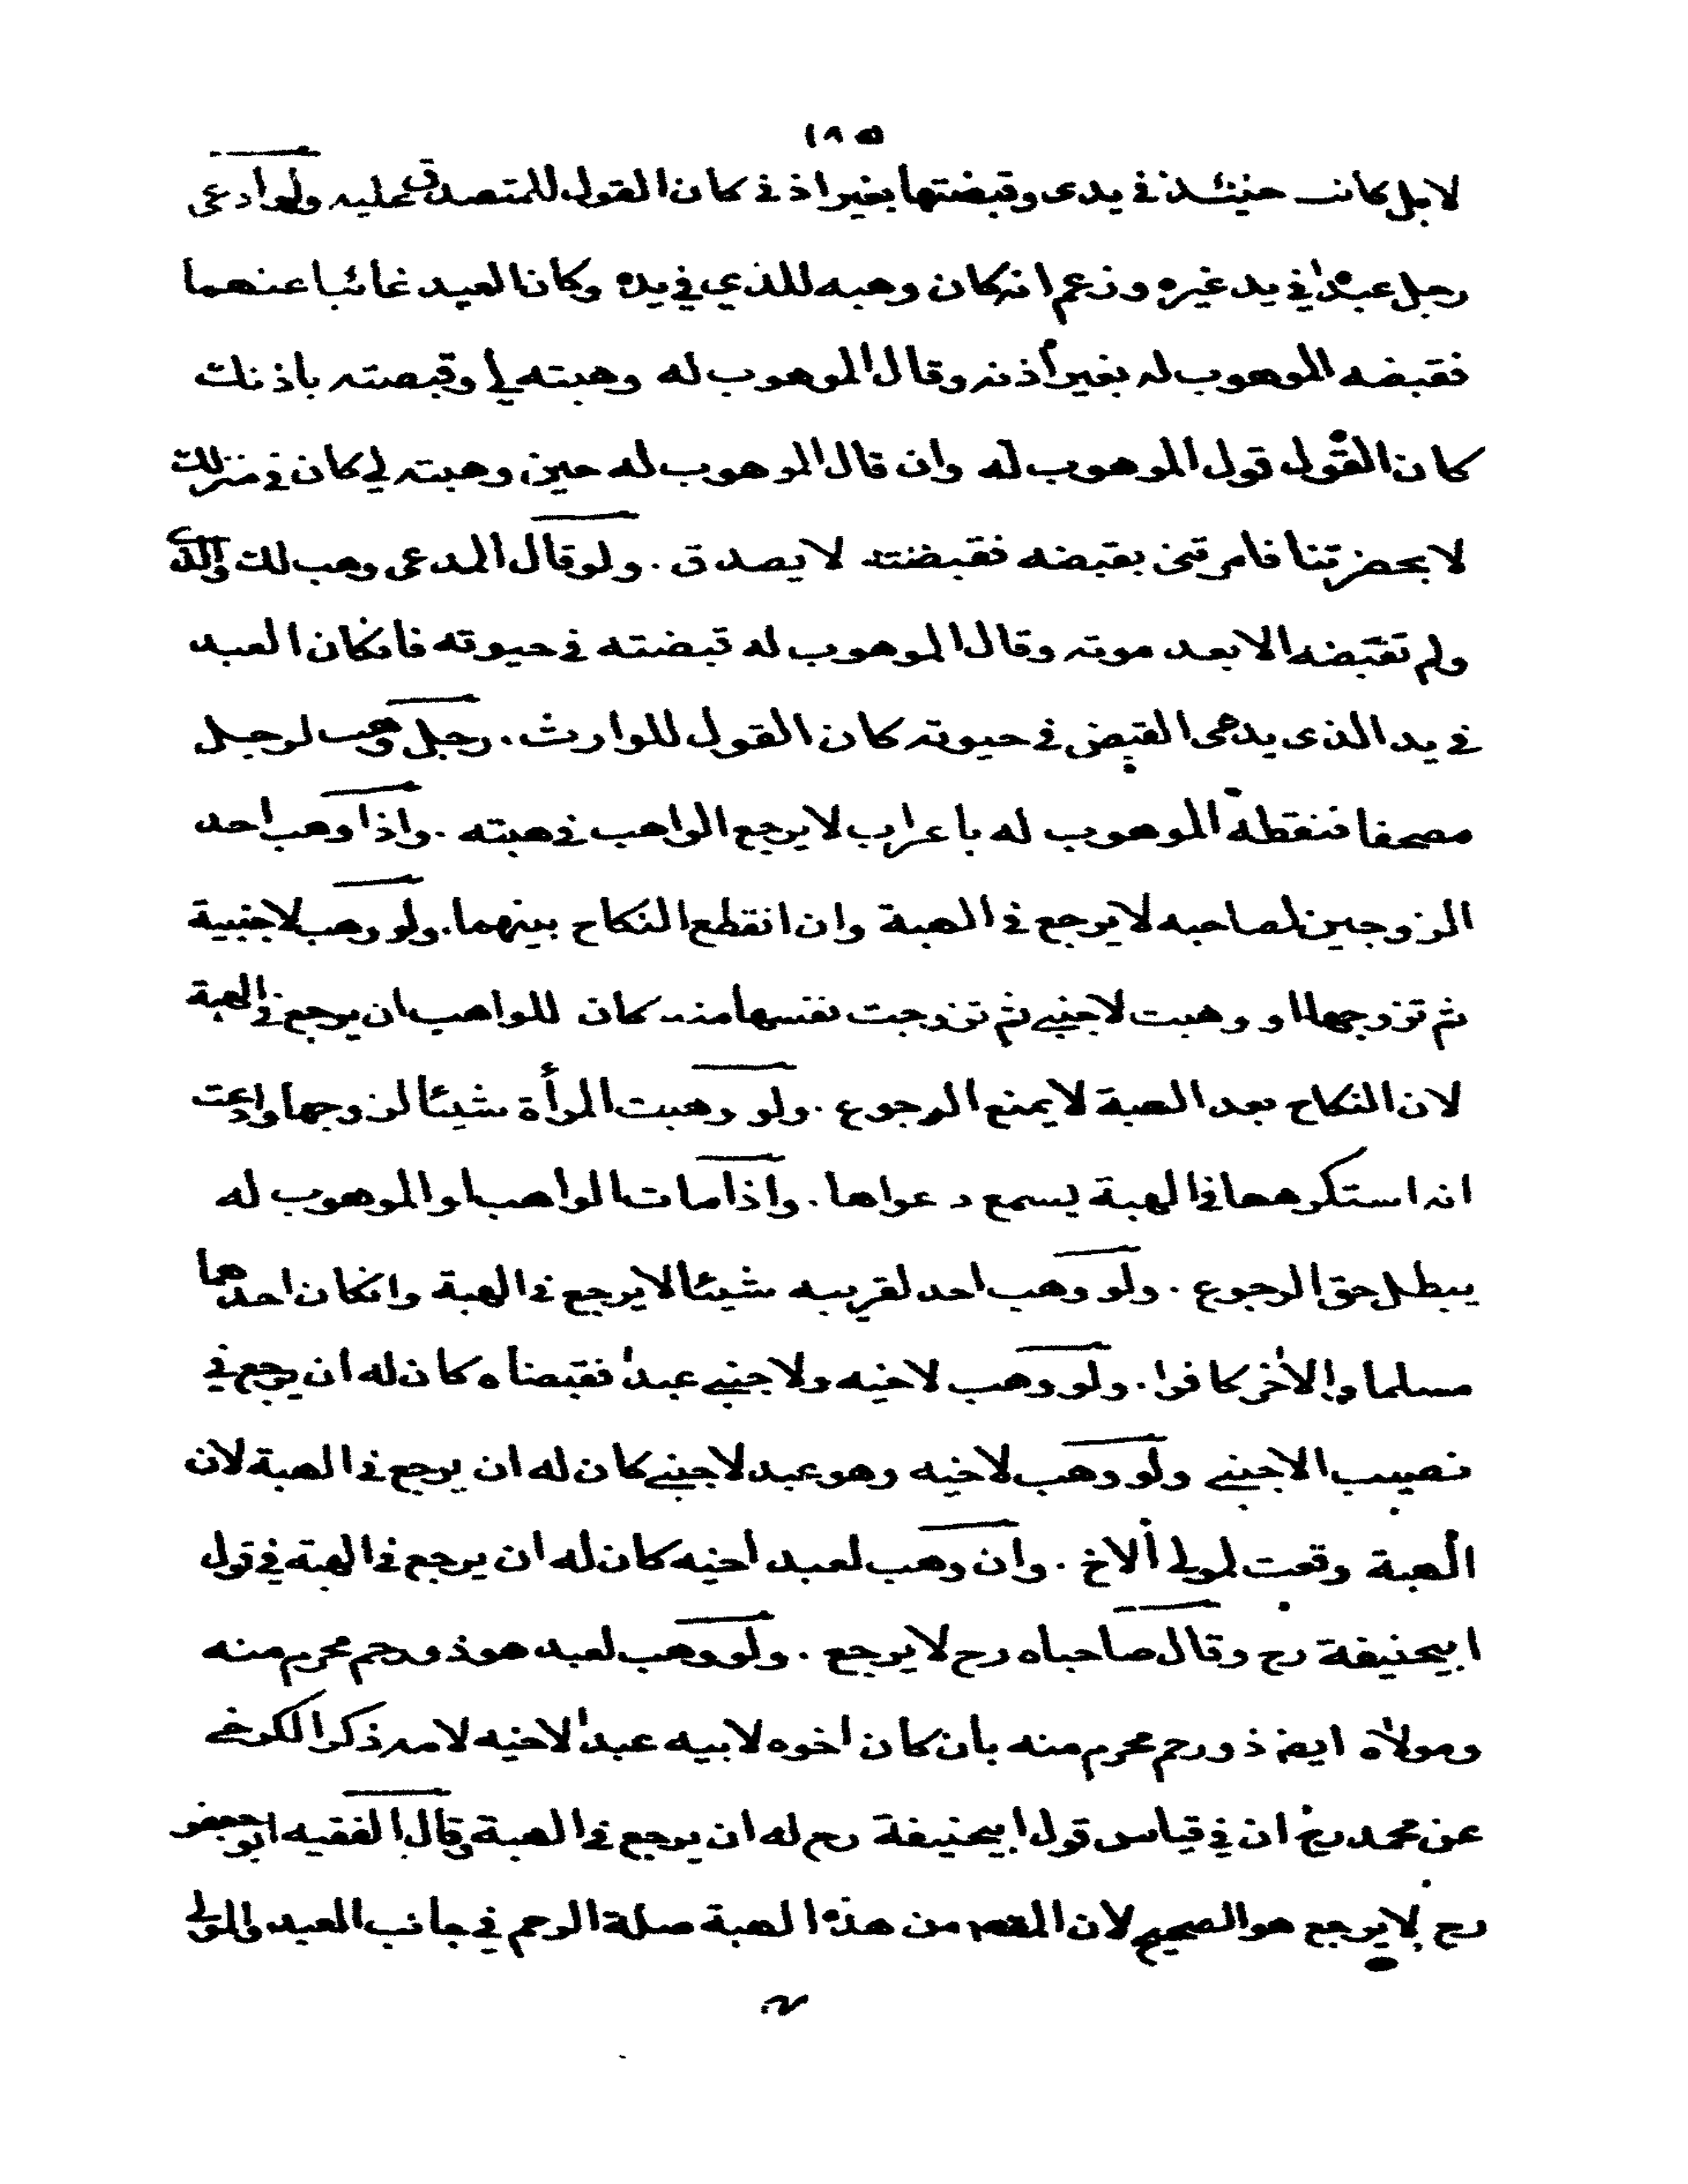 ١٨٥
لا بل كانت حينئذ في يدى وقبضتها بغير اذ في كان القول للمتصدق عليه ولو ادعى
رجل عبدا في يد غيره وزعم انه كان وهبه للذي في يده وكان العبد غائبا عنهما
فقبضه الموهوب له بغير اذنه وقال الموهوب له وهبته لي وقبضته باذنك
كان القول قول الموهوب له وان قال الموهوب له حين وهبته لي كان في منزلك
لا بحضرتنا فامرتني بقبضه فقبضته لا يصدق . ولو قال المدعى وهب لك والدى
ولم تقبضه الا بعد موته وقال الموهوب له قبضته في حيوته فانكان العبد
في يد الذى يدعى القبض في حيوته كان القول للوارث . رجل وهب لرجل
مصحفا فنقطه الموهوب له باعراب لا يرجع الواهب في هبته . واذا وهب احد
الزوجين لصاحبه لا يرجع في الهبة وان انقطع النكاح بينهما . ولو وهب لاجنبية
ثم تزوجها او وهبت لاجنبي ثم تزوجت نفسها منه كان للواهب ان يرجع في الهبة
لان النكاح بعد الهبة لا يمنع الرجوع . ولو وهبت المرأة شيئا لزوجها وادعت
انه استكرهها في الهبة يسمع دعواها . واذا مات الواهب او الموهوب له
يبطل حق الرجوع . ولو وهب احد لقريبه شيئا لا يرجع في الهبة وانكان احدهما
مسلما والاخر كافرا . ولو وهب لاخيه ولاجنبي عبدا فقبضاه كان له ان يرجع في
نصيب الاجنبي ولو وهب لاخيه وهو عبد لاجنبي كان له ان يرجع في الهبة لان
الهبة وقعت لمولى الاخ . وان وهب لعبد اخيه كان له ان يرجع في الهبة في قول
ابيحنيفة رح وقال صاحباه رح لا يرجع . ولو وهب لعبد هو ذو رحم محرم منه
ومولاه ايضا ذو رحم محرم منه بان كان اخوه لابيه عبدا لاخيه لامه ذكر الكرخي
عن محمد رح ان في قياس قول ابيحنيفة رح له ان يرجع في الهبة وقال الفقيه ابو جعفر
رح لا يرجع هو الصحيح لان المقصد من هذه الهبة صلة الرحم في جانب العبد والمولى